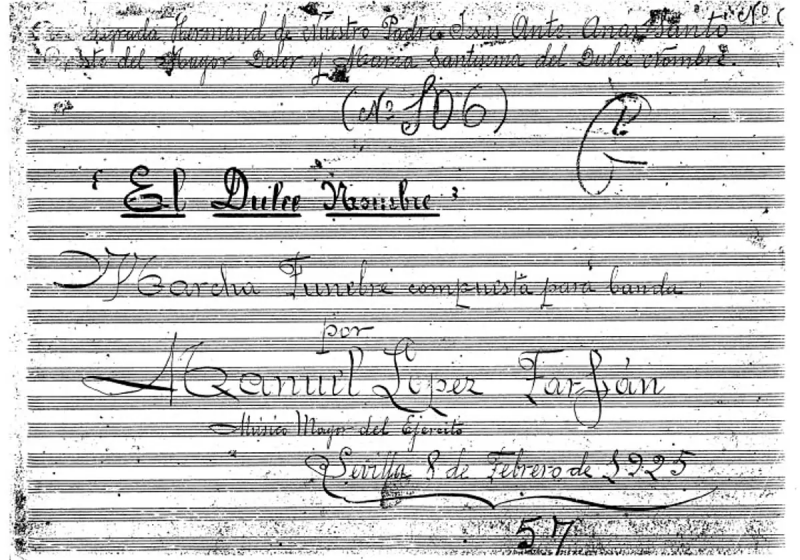 Hermand de Nuestro Padre Jesús Ante. Anas Santo Nº
del Mayor Dolor y Maria Santisima del Dulce Nombre.
(Nº 106)
"El Dulce Nombre"
Marcha Funebre compuesta para banda
por
Manuel López Farfán
Músico Mayor del Ejercito
Sevilla 8 de Febrero de 1925
57